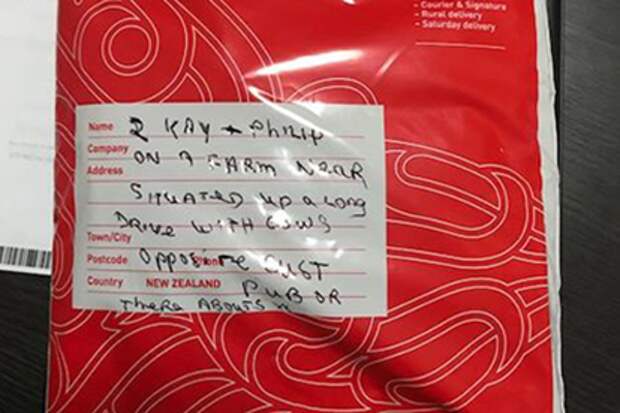 - Courier & Signature
- Rural delivery
- Saturday delivery
Name 2 KAY + PHILIP
Company
ON A FARM NEAR
Address
SITUATED UP A LONG
DRIVE WITH COWS
Town/City
Postcode OPPOSITE CUST
Country NEW ZEALAND PUB OR
THERE ABOUTS